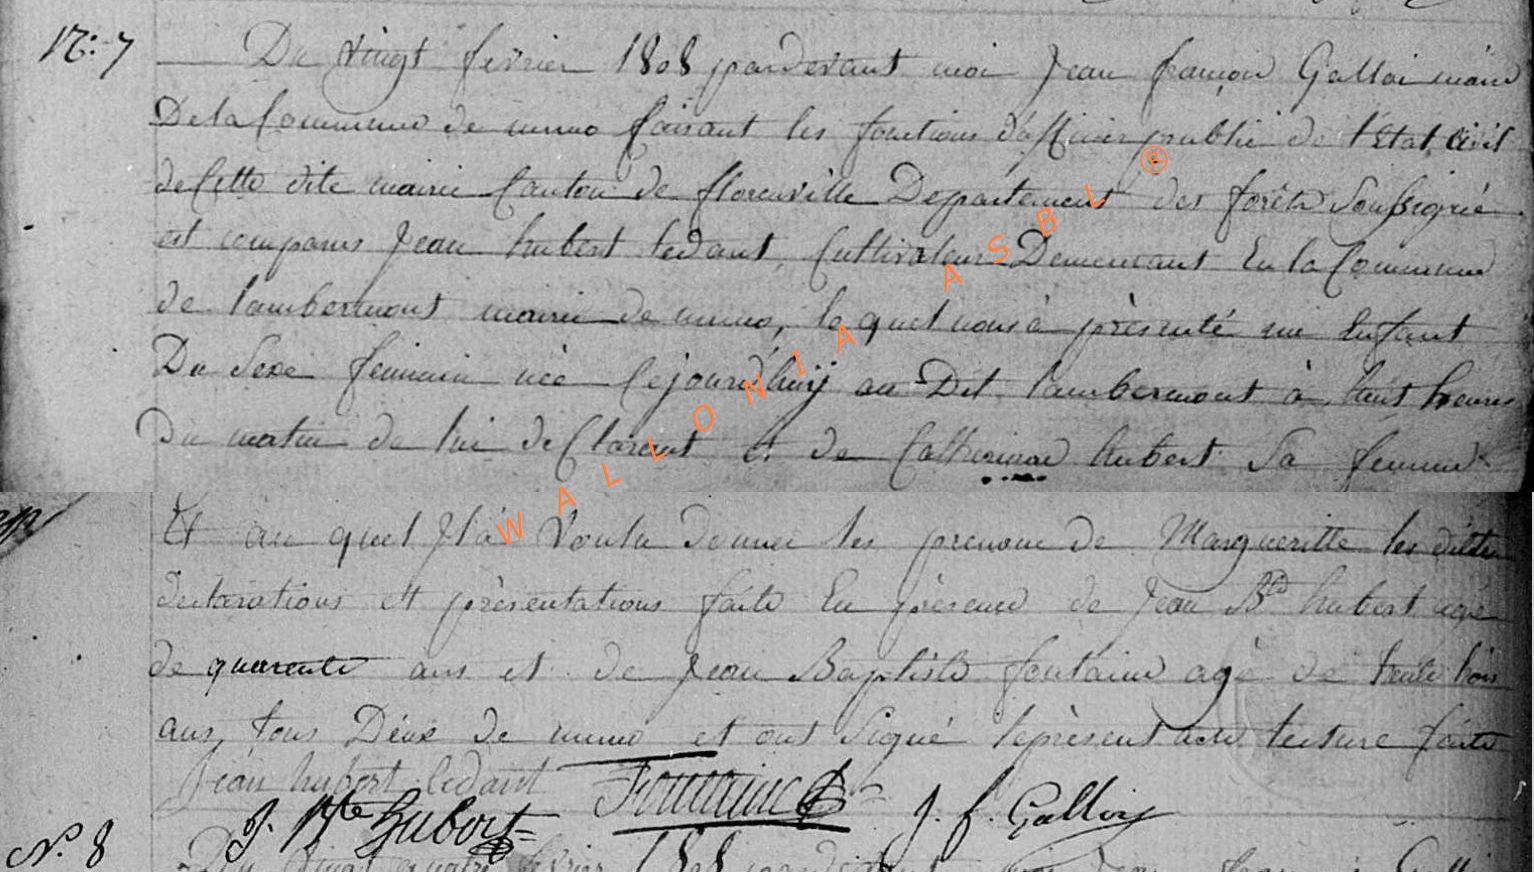 N°: 7
Du vingt fevrier 1808 pardevant moi Jean françois Galloi maire
De la Commune de muno faisant les fonctions d'officier public de l'Etat Civil
de Cette dite mairie Canton de florenville Departement des forêts Soussigné
est comparus Jean hubert ledant, Cultivateur Demeurant En la Commune
de lambermont mairie de muno, le quel nous à présenté un Enfant
Du Sexe feminin née Cejourd'huij au Dit lambermont à huit heures
Du matin de lui deClarant et de Catherinne hubert Sa femme
Et au quel Jl à Voulu donner les prenom de Margueritte les dittes
declarations et présentations faite En présence de Jean Bte hubert agé
de quarente ans et de Jean Baptiste fontaine agé de trente trois
ans, tous Déux de muno et ont Signé leprésent acte lecture faite
Jean hubert ledant Fontaine J. f. Galloy
J. Bte Hubert
N°. 8
Du Vingt quatre fevrier 1808 pardevant moi Jean
WALLONIA ASBL ®